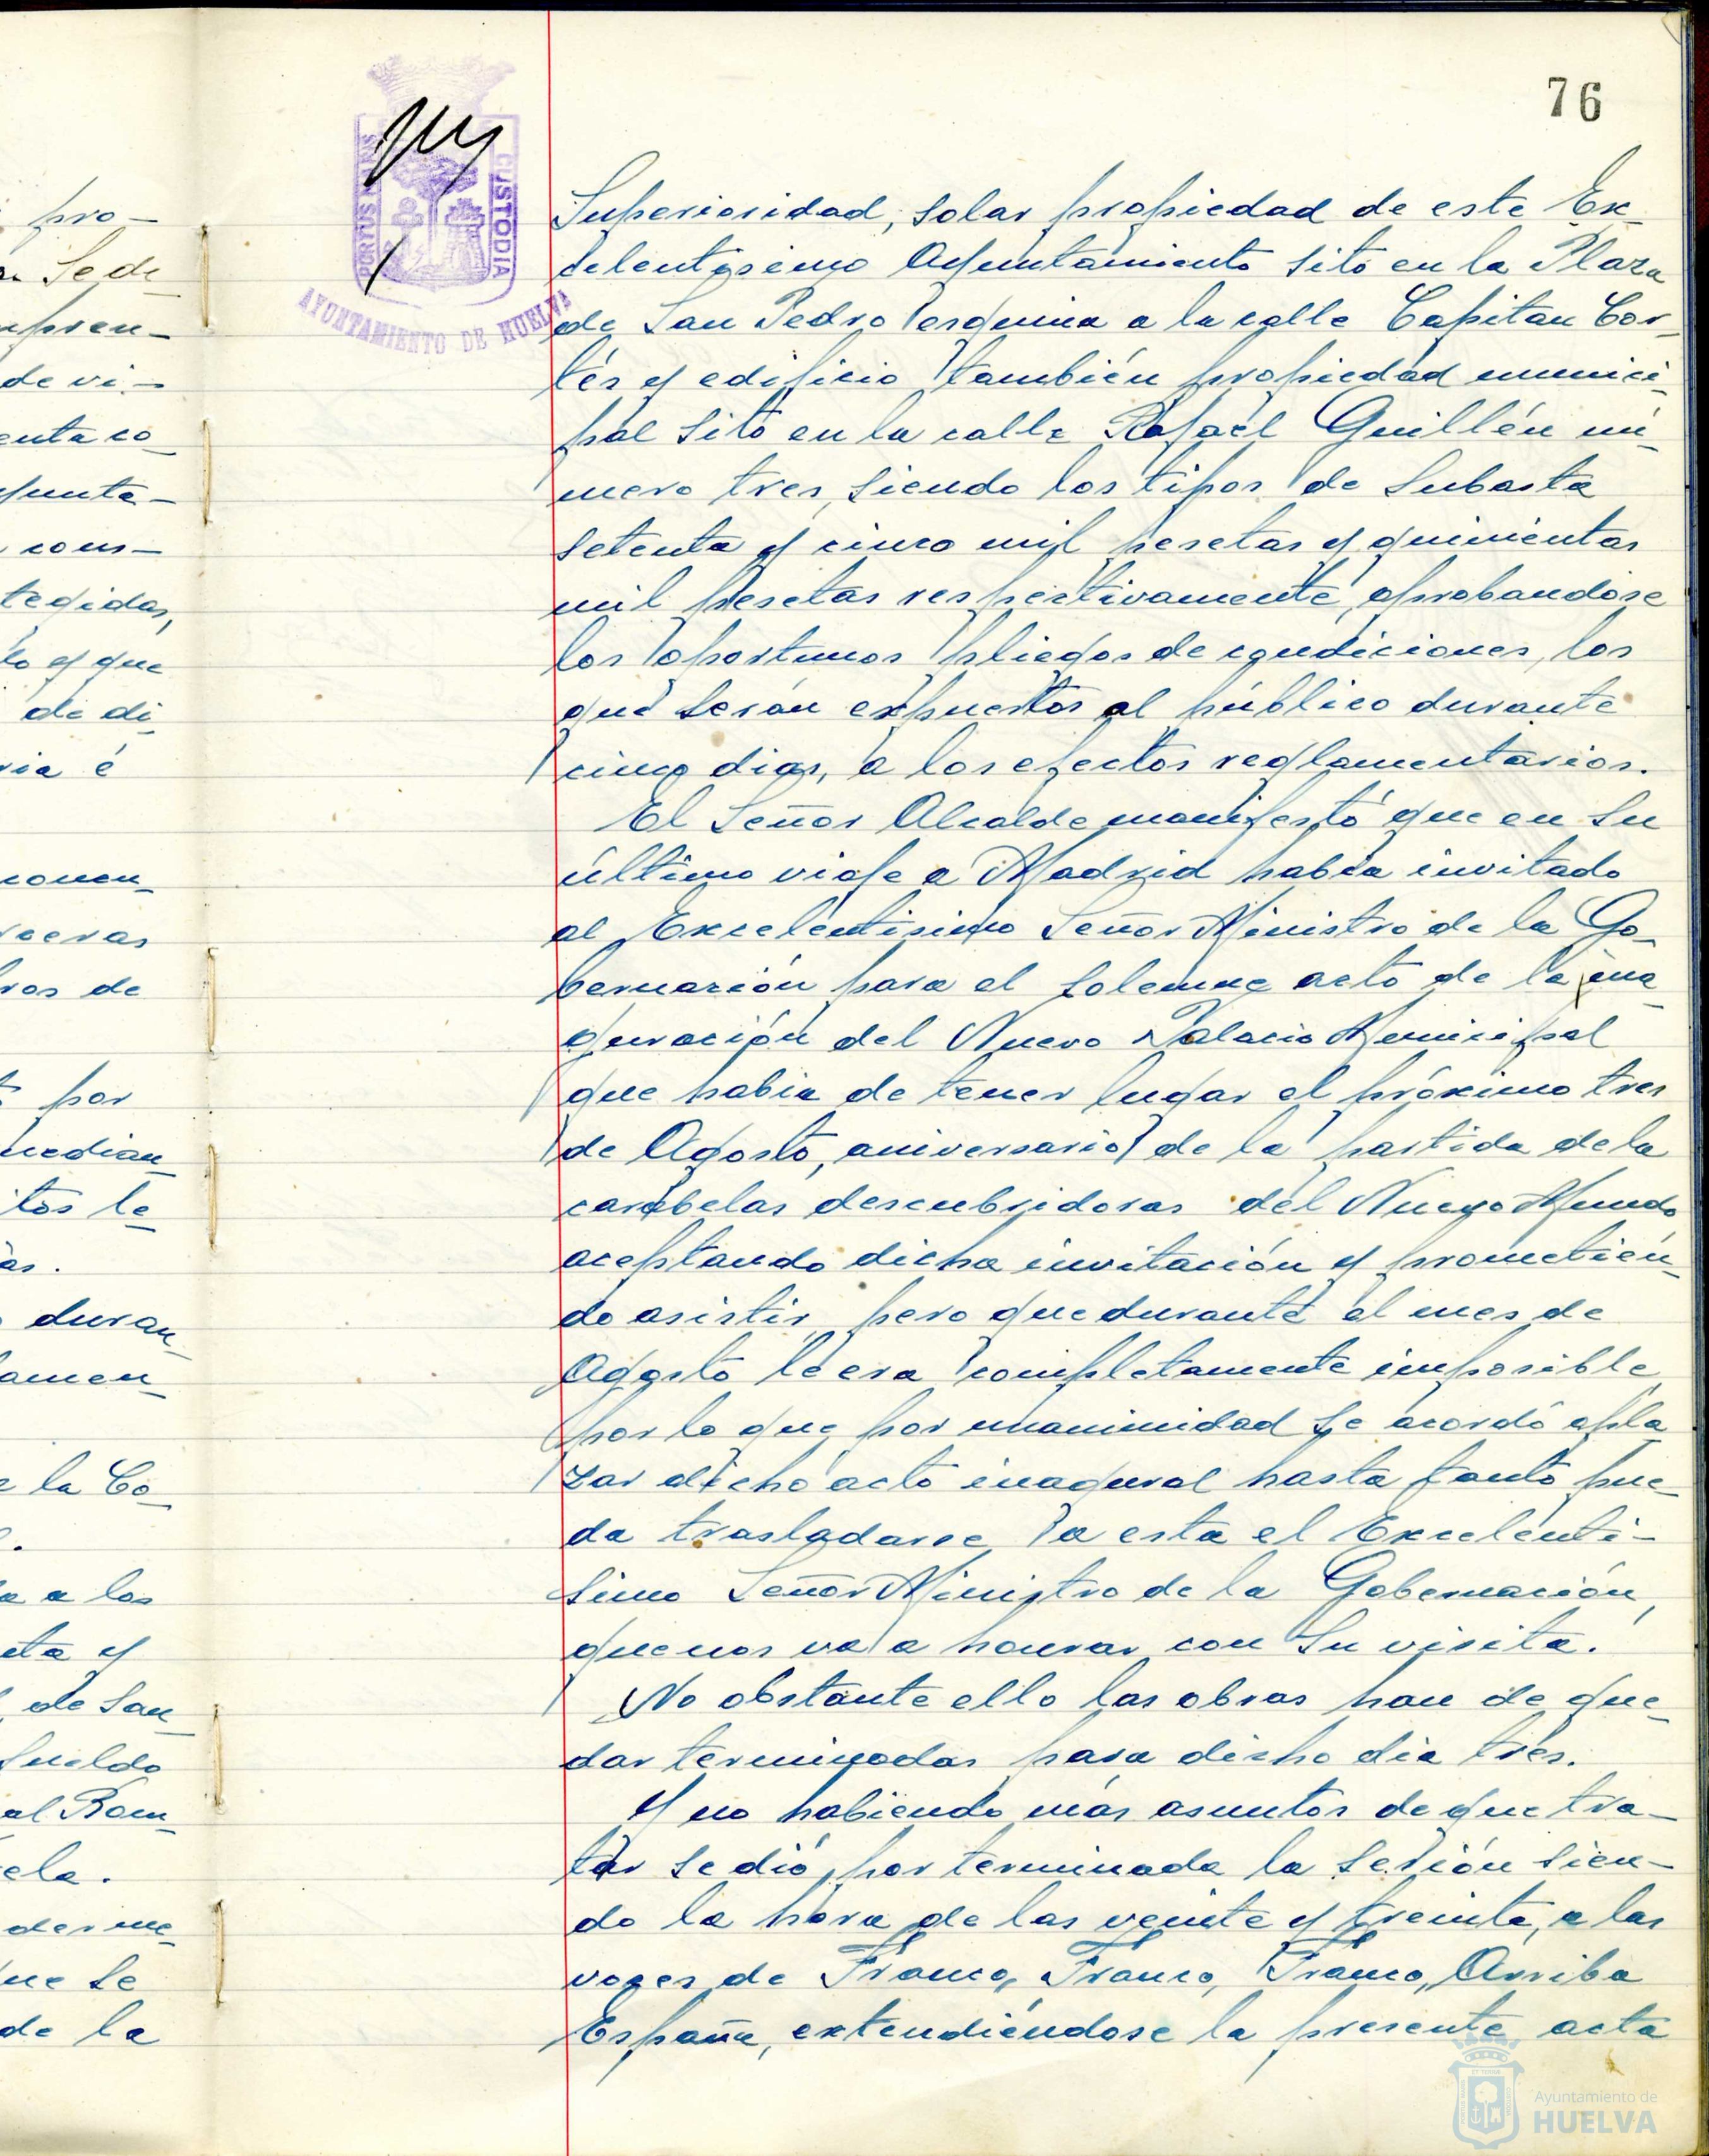 76
PORTUS MARIS
CUSTODIA
AYUNTAMIENTO DE HUELVA
pro-
Sede
pren-
de vi-
enta co-
yunta-
cons-
tegidas,
to y que
de di-
ria é
conen-
ros de
por
median-
itos le-
as.
duran-
lamen-
e la Co-
a a los
eta y
de San-
Sueldo
al Rom-
ela.
que se
de la
Superioridad, solar propiedad de este Ex-
celentisimo Ayuntamiento sito en la Plaza
de San Pedro esquina a la calle Capitan Cor-
tés y edificio tambien propiedad munici-
pal sito en la calle Rafael Guillén nú-
mero tres, siendo los tipos de subasta
setenta y cinco mil pesetas y quinientas
mil pesetas respectivamente, aprobandose
los oportunos pliegos de condiciones, los
que serán expuestos al público durante
cinco dias, a los efectos reglamentarios.
El Señor Alcalde manifestó que en su
último viaje a Madrid habia invitado
al Excelentisimo Señor Ministro de la Go-
bernación para el solemne acto de la ina-
guración del Nuevo Palacio Municipal
que habia de tener lugar el próximo tres
de Agosto, aniversario de la partida de la
carabelas descubridoras del Nuevo Mundo
aceptando dicha invitación y prometien-
do asistir, pero que durante el mes de
Agosto le era completamente imposible,
por lo que por unanimidad se acordó apla-
zar dicho acto inagural hasta tanto pue-
da trasladarse a esta el Excelenti-
simo Señor Ministro de la Gobernación,
que nos va a honrar con su visita.
No obstante ello las obras han de que-
dar terminadas para dicho dia tres.
Y no habiendo más asuntos de que tra-
tar se dió por terminada la sesión sien-
do la hora de las veinte y treinta, a las
voces de Franco, Franco, Franco, Arriba
España, extendiéndose la presente acta
Ayuntamiento de
HUELVA